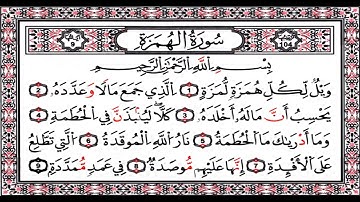 سُورَةُ الْهُمَزَةِ
بِسْمِ اللَّهِ الرَّحْمَٰنِ الرَّحِيمِ
وَيْلٌ لِّكُلِّ هُمَزَةٍ لُّمَزَةٍ 1 الَّذِي جَمَعَ مَالًا وَعَدَّدَهُ 2
يَحْسَبُ أَنَّ مَالَهُ أَخْلَدَهُ 3 كَلَّا لَيُنبَذَنَّ فِي الْحُطَمَةِ 4
وَمَا أَدْرَاكَ مَا الْحُطَمَةُ 5 نَارُ اللَّهِ الْمُوقَدَةُ 6 الَّتِي تَطَّلِعُ
عَلَى الْأَفْئِدَةِ 7 إِنَّهَا عَلَيْهِم مُّؤْصَدَةٌ 8 فِي عَمَدٍ مُّمَدَّدَةٍ 9